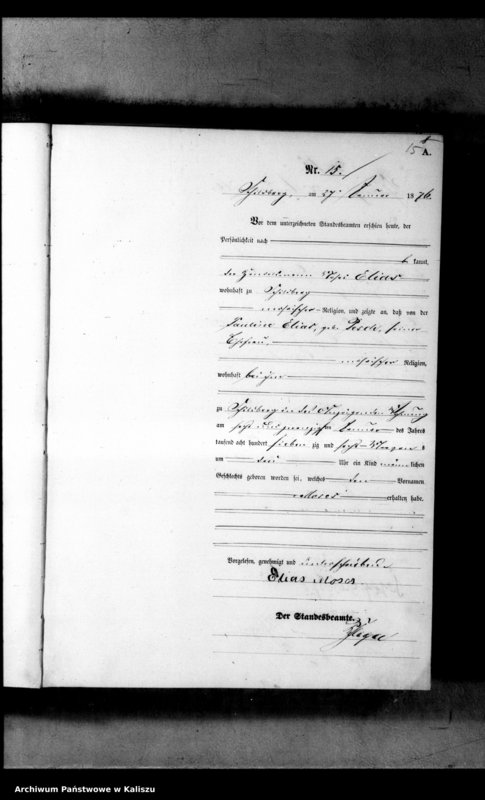 15 A.
Nr. 15.
Schildberg, am 27 Januar 1876.
Vor dem unterzeichneten Standesbeamten erschien heute, der
Persönlichkeit nach
b kannt,
der Handelsmann Elias
wohnhaft zu Schildberg
mosaischer Religion, und zeigte an, daß von der
Pauline Elias, geb. seiner
Ehefrau,
mosaischer Religion,
wohnhaft bei ihm
zu Schildberg in des Wohnung
am sechs und zwanzigsten Januar des Jahres
tausend acht hundert sieben zig und sechs Morgens
um drei Uhr ein Kind männlichen
Geschlechts geboren worden sei, welches den Vornamen
Moses erhalten habe.
Vorgelesen, genehmigt und unterschrieben
Elias Moses
Der Standesbeamte.
Archiwum Państwowe w Kaliszu